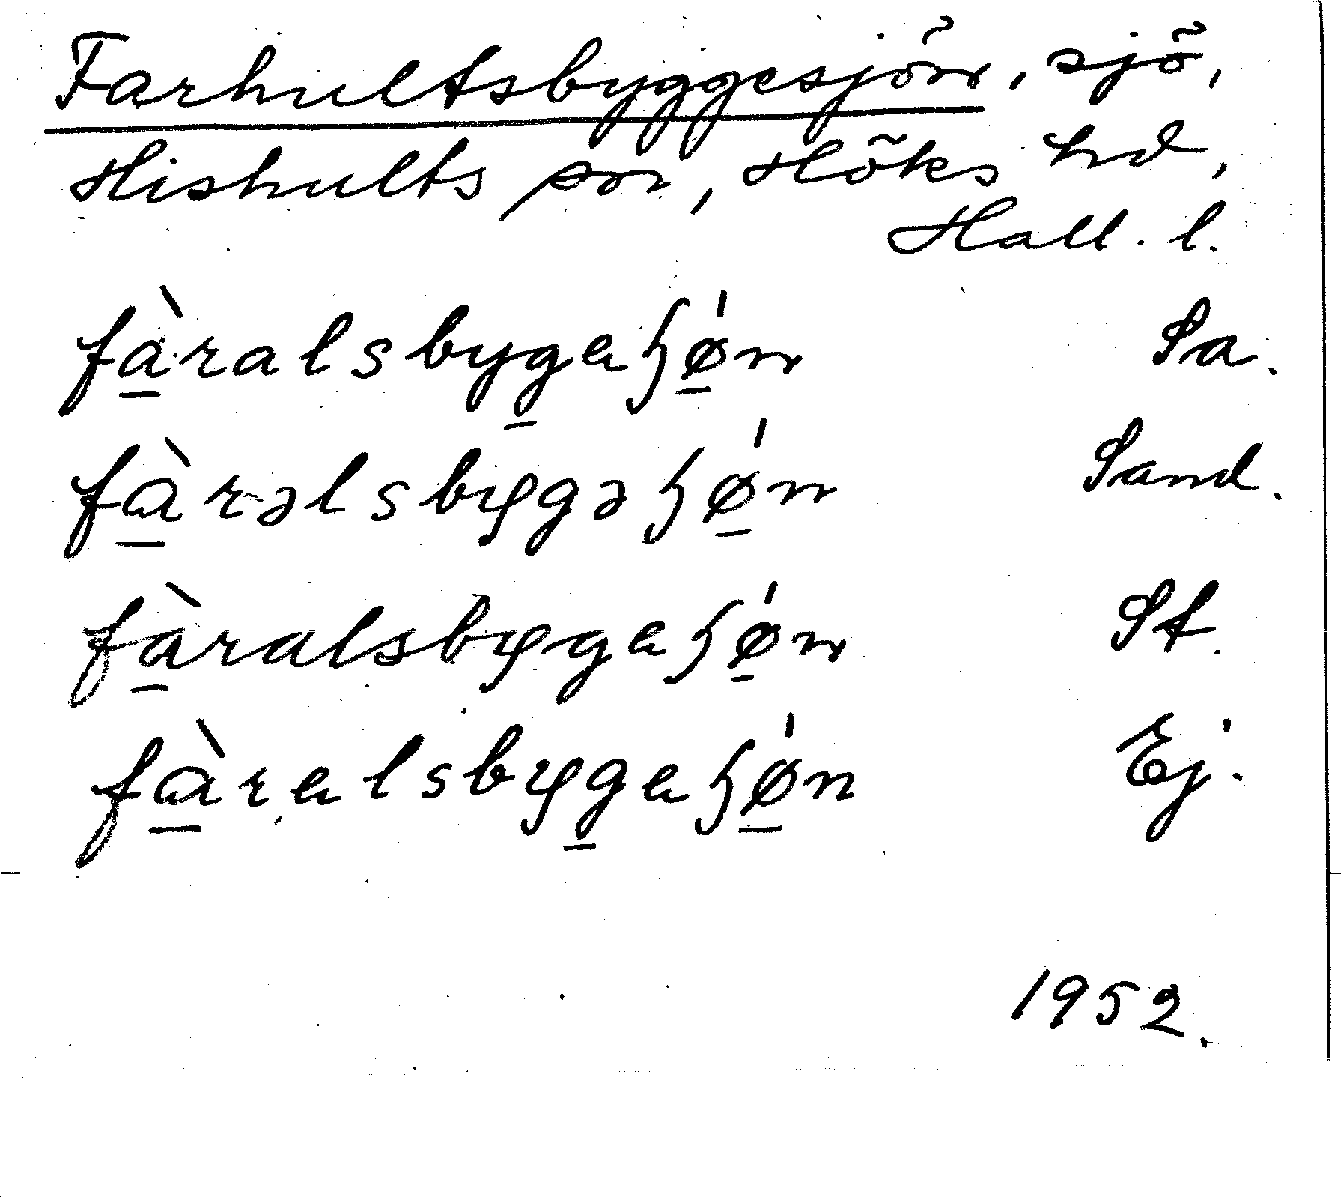 Farhultsbyggesjön, sjö,
Hishults sn, Höks hd,
Hall. l.
fà̲ralsbyg̲aɧǿ̲n Sa.
fà̲rəlsbygəɧǿ̲n Sand.
fà̲ralsbygaɧǿ̲n St.
fà̲ralsbyg̲aɧǿ̲n Ej.
1952.